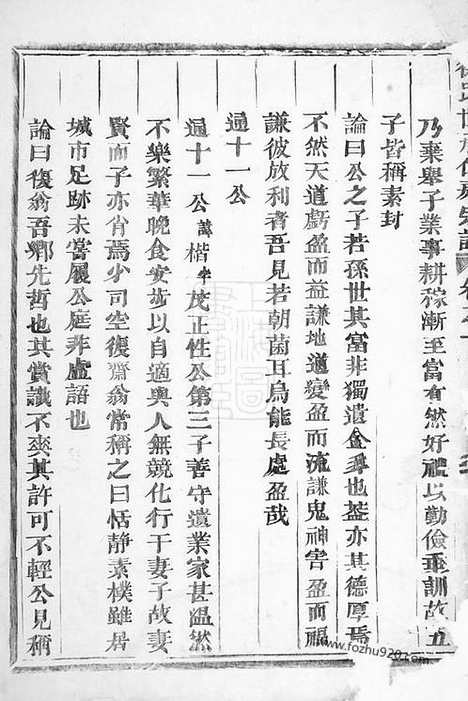 乃棄舉子業事耕稼漸至富有然好禮以勤儉垂訓故五
子皆稱素封
論曰公之子若孫世其富非獨遺金多也益亦其德厚焉
不然天道虧盈而益謙地道變盈而流謙鬼神害盈而福
謙彼放利者吾見若朝菌耳烏能長處盈哉
通十一公
通十一公諱楷字茂正性公第三子善守遺業家甚溫然
不樂繁華晚食安步以自適與人無競化行于妻子故妻
賢而子亦肖焉少司空復齋翁常稱之曰恬静素樸雖居
城市足跡未嘗履公庭非虛語也
論曰復翁吾鄉先哲也其賞識不爽其許可不輕公見稱
www.fozhu920.com